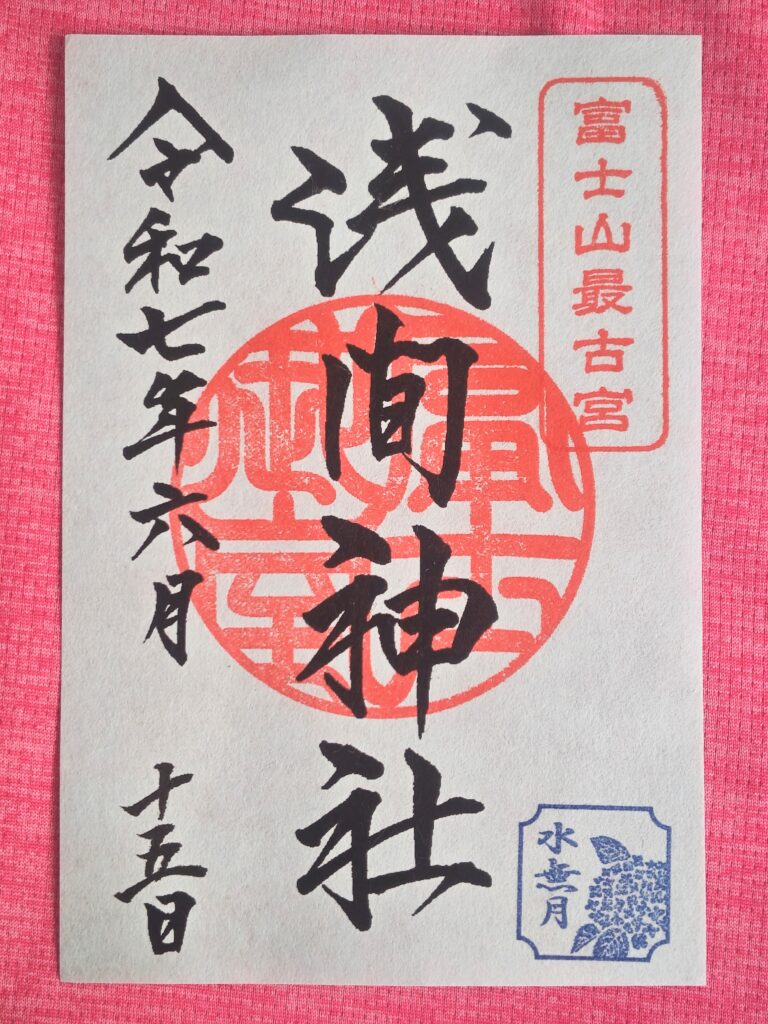 富士山最古宮
浅間神社
令和七年六月
十五日
水無月